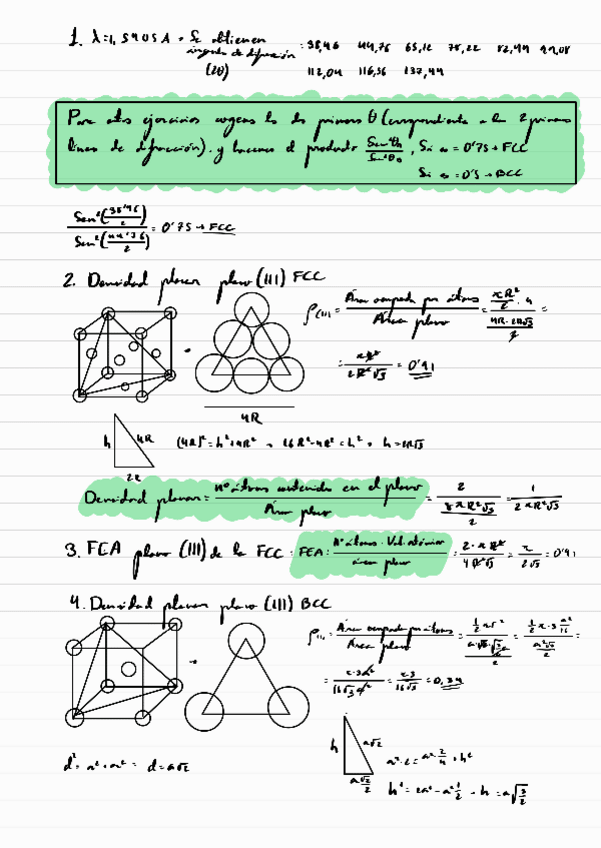 1. λ=1,5405 Å → Se obtienen ángulos de difracción (2θ) = 38,46 44,76 65,12 78,22 82,44 99,08
112,04 116,56 137,44
Para otros ejercicios cogemos los dos primeros θ (correspondientes a las 2 primeras
líneas de difracción) y hacemos el producto Sen²θ₁/Sen²θ₂, Si es = 0'75 → FCC
Si es = 0'5 → BCC
Sen²(38'46/2) / Sen²(44'76/2) = 0'75 → FCC
2. Densidad planar plano (111) FCC
ρ(111) = Área ocupada por átomos / Área plano =
= 0'91
4R
h 4R
2R
(4R)² = h² + 4R² → 16R² - 4R² = h² → h = 2R√3
Densidad planar = nº átomos contenidos en el plano / Área plano = = 1 / 2πR²√3
3. FEA plano (111) de la FCC: FEA = nº átomos · Vol atómico / área plano = 2·πR² / 4R²√3 = π / 2√3 = 0'91
4. Densidad planar plano (111) BCC
ρ(111) = Área ocupada por átomos / Área plano =
= π·3a² / 16√3a² = π·3 / 16√3 = 0,34
h a√2
a√2/2
d² = a² + a² = d = a√2
a²·2 = a²·2/4 + h²
h² = 2a² - a²·1/2 → h = a√(3/2)